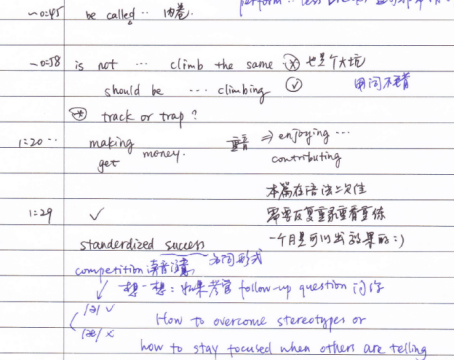 ~0:45 be called ·· 内卷. perform
~0:58 is not ··· climb the same ⓧ 也是个大坑
should be ··· climbing ✓ 用词
* track or trap?
1:20 ·· making 重音 ⇒ enjoying ···
get money. contributing
本篇在语法上
1:29 ✓ 需要反复
standerdized success 一个月是可以出效果的:)
competition 读音注意 名词形式
想一想: 如果考官 follow-up question 问你
/ə/ ✓ How to overcome stereotypes or
/æ/ × how to stay focused when others are telling